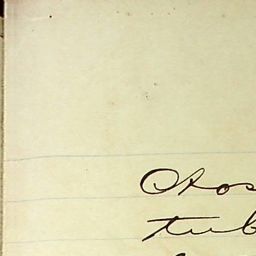 Otos
tub